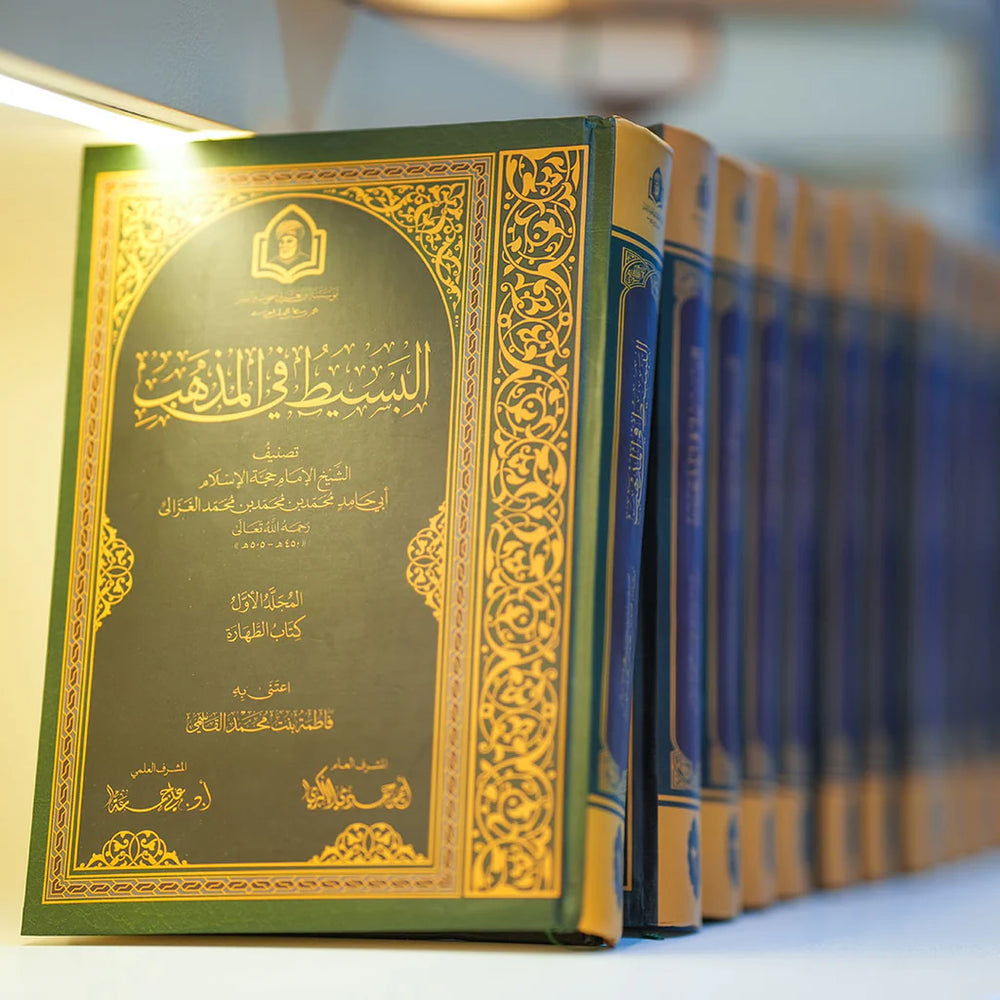 البَسِيطُ فِي المَذْهَبِ
تصنيفُ
الشَّيْخِ الإِمَامِ حُجَّةِ الإِسْلَامِ
أَبِي حَامِدٍ مُحَمَّدِ بْنِ مُحَمَّدِ بْنِ مُحَمَّدٍ الغَزَالِيِّ
رَحِمَهُ اللهُ تَعَالَى
«٤٥٠هـ - ٥٠٥هـ»
المُجَلَّدُ الأَوَّلُ
كِتَابُ الطَّهَارَةِ
اعتَنَى بِهِ
فَاطِمَة بنت محمد القاسمي
المشرف العام
المشرف العلمي
البسيط في المذهب